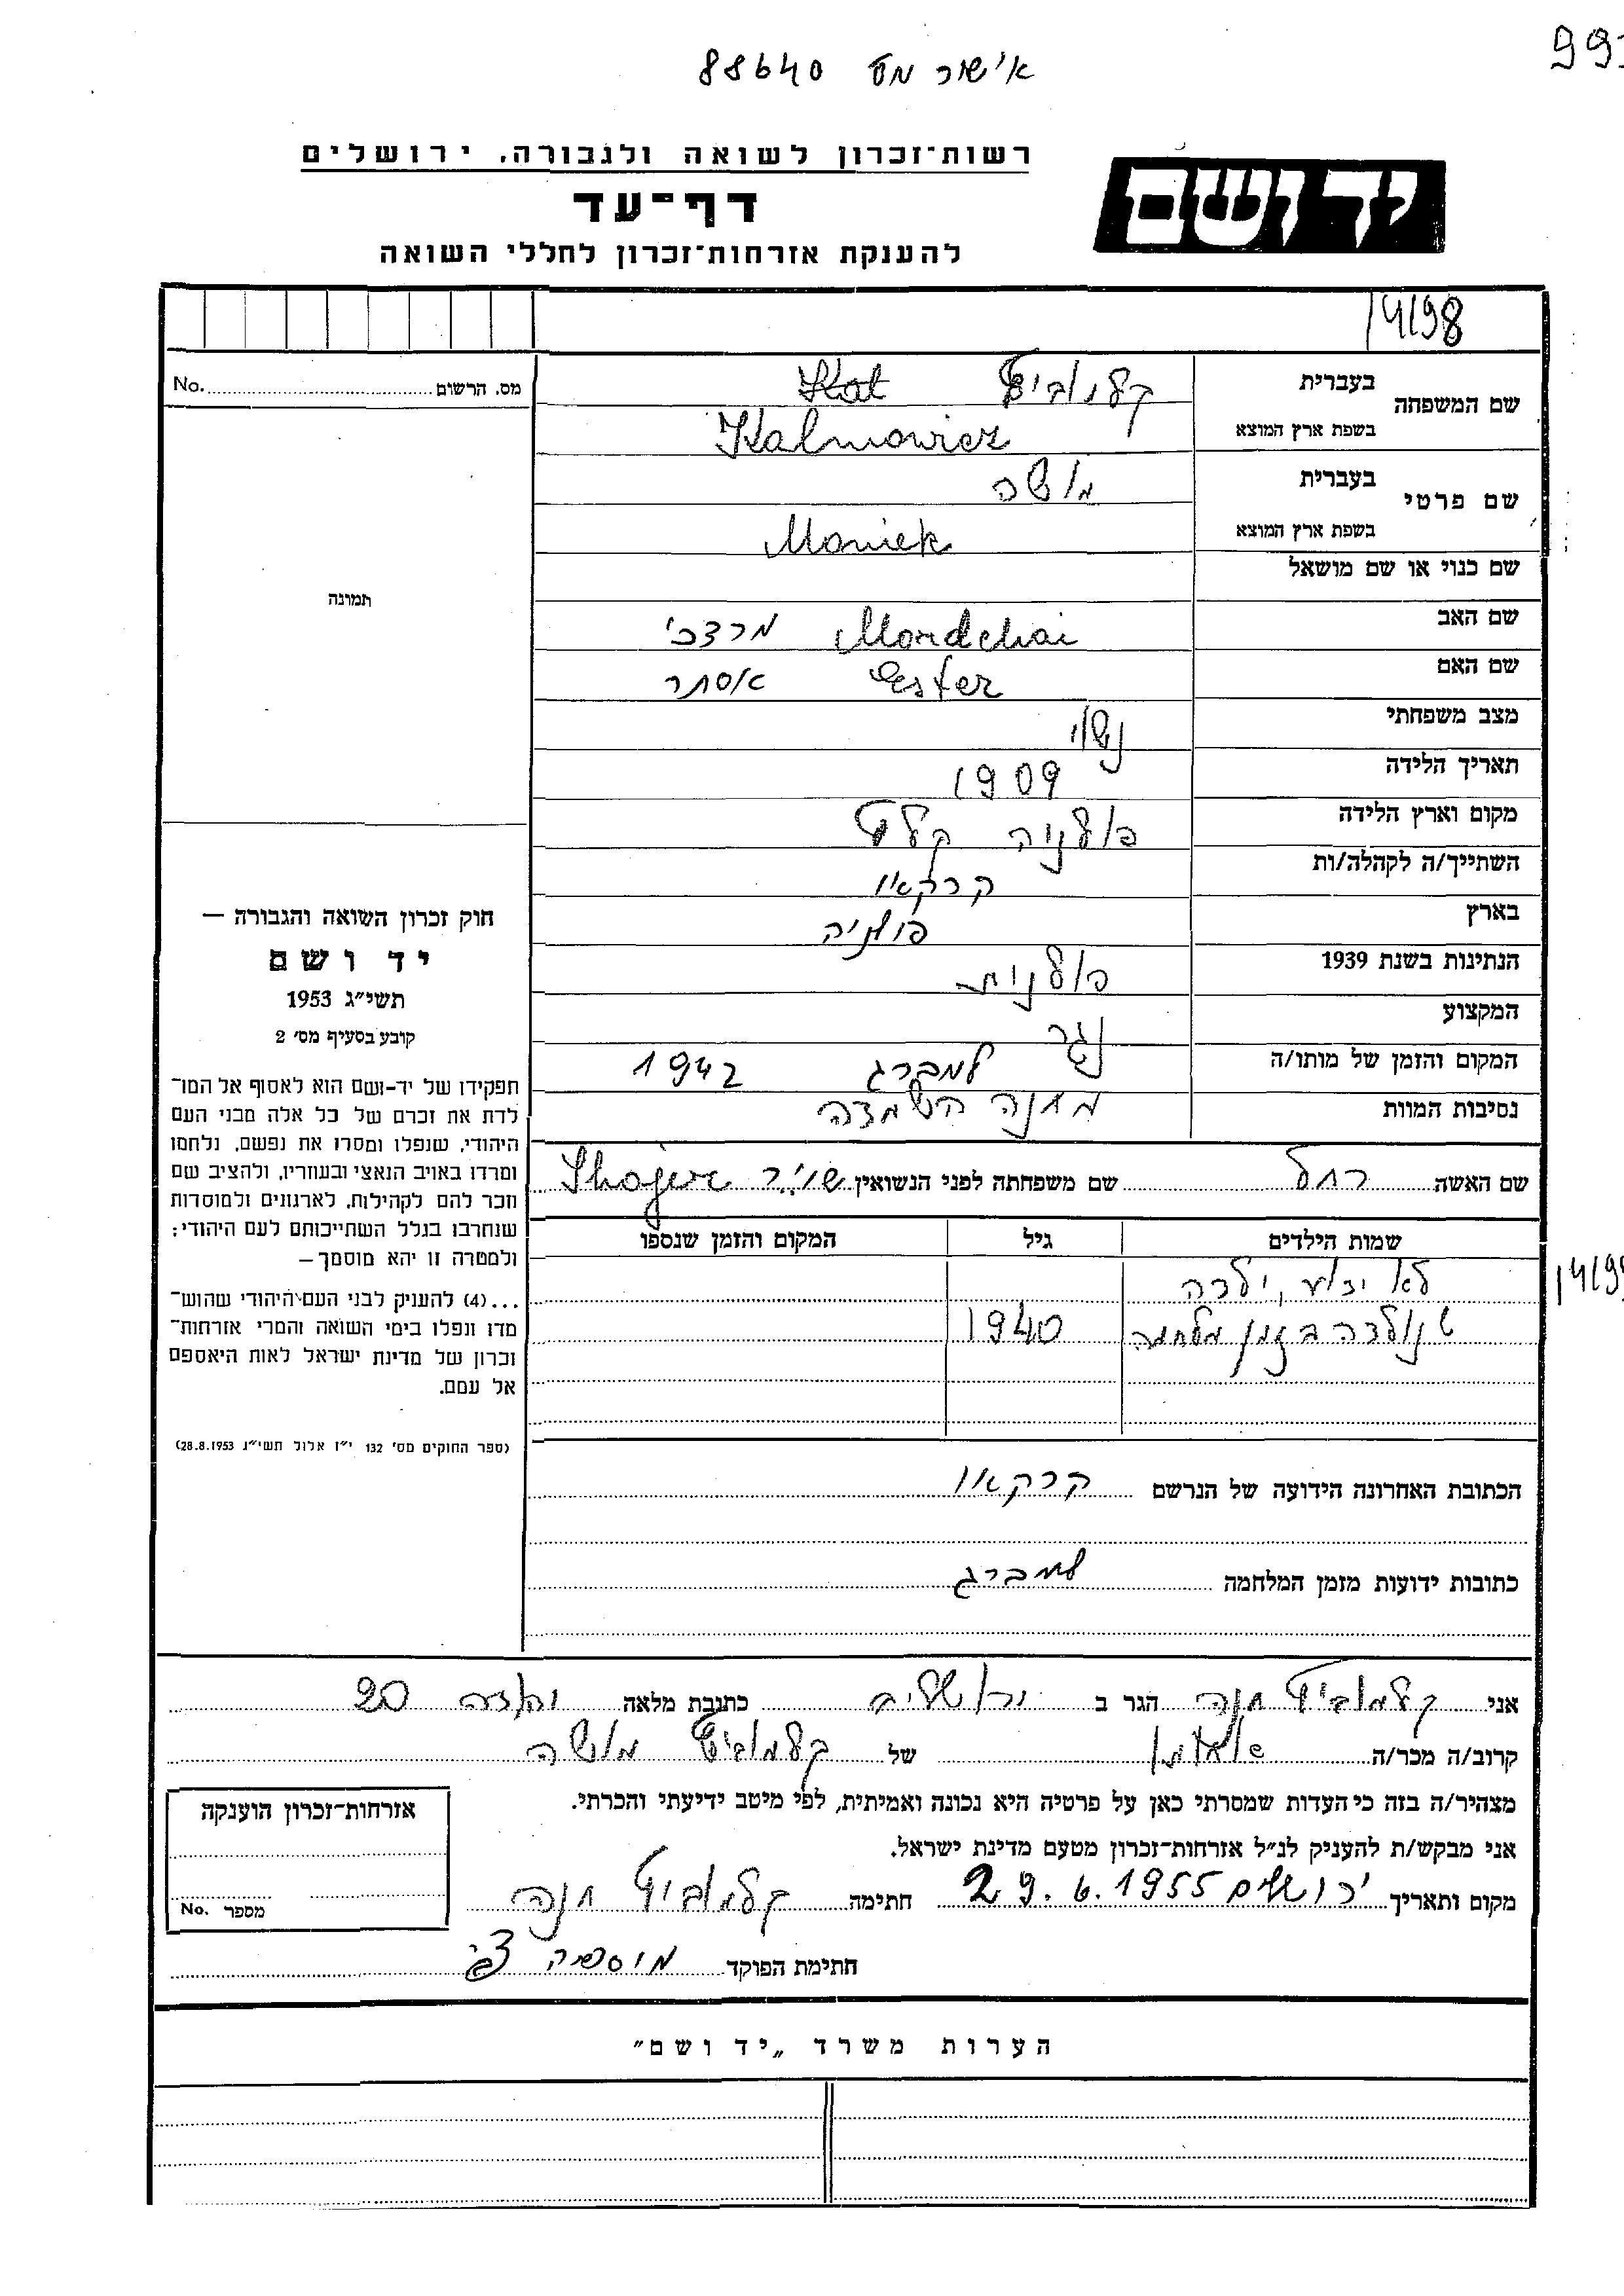 993
אישור מס 88640
רשות־זכרון לשואה ולגבורה, ירושלים
יד ושם
דף־עד
להענקת אזרחות־זכרון לחללי השואה
14198
מס. הרשום No.
שם המשפחה
בעברית
Kat
בשפת ארץ המוצא Kalmowicz
שם פרטי
בעברית משה
בשפת ארץ המוצא Moniek
תמונה
שם כנוי או שם מושאל
שם האב Mordchai מרדכי
שם האם Ester אסתר
מצב משפחתי נשוי
תאריך הלידה 1909
מקום וארץ הלידה פולניה קלץ
השתייך/ה לקהלה/ות קרקאו
בארץ פולניה
הנתינות בשנת 1939 פולנית
המקצוע נגר
המקום והזמן של מותו/ה למברג 1942
נסיבות המוות מחנה השמדה
שם האשה רחל שם משפחתה לפני הנשואין
שמות הילדים גיל המקום והזמן שנספו
לא ידוע, ילדה 1419
שנולדה בזמן מלחמה 1940
הכתובת האחרונה הידועה של הנרשם קרקאו
כתובות ידועות מזמן המלחמה למברג
חוק זכרון השואה והגבורה —
יד ושם
תשי״ג 1953
קובע בסעיף מס׳ 2
תפקידו של יד-ושם הוא לאסוף אל המו־
לדת את זכרם של כל אלה מבני העם
היהודי, שנפלו ומסרו את נפשם, נלחמו
ומרדו באויב הנאצי ובעוזריו, ולהציב שם
וזכר להם לקהילות, לארגונים ולמוסדות
שנחרבו בגלל השתייכותם לעם היהודי;
ולמטרה זו יהא מוסמך —
...(4) להעניק לבני העם היהודי שהוש־
מדו ונפלו בימי השואה והמרי אזרחות־
זכרון של מדינת ישראל לאות היאספם
אל עמם.
(ספר החוקים מס׳ 132 י״ז אלול תשי״ג 28.8.1953)
אני קלמוביץ חנה הגר ב ירושלים כתובת מלאה 20
קרוב/ה מכר/ה של קלמוביץ משה
מצהיר/ה בזה כי העדות שמסרתי כאן על פרטיה היא נכונה ואמיתית, לפי מיטב ידיעתי והכרתי.
אני מבקש/ת להעניק לנ״ל אזרחות־זכרון מטעם מדינת ישראל.
מקום ותאריך ירושלים 29.6.1955 חתימה קלמוביץ חנה
חתימת הפוקד
אזרחות־זכרון הוענקה
מספר No.
הערות משרד „יד ושם״